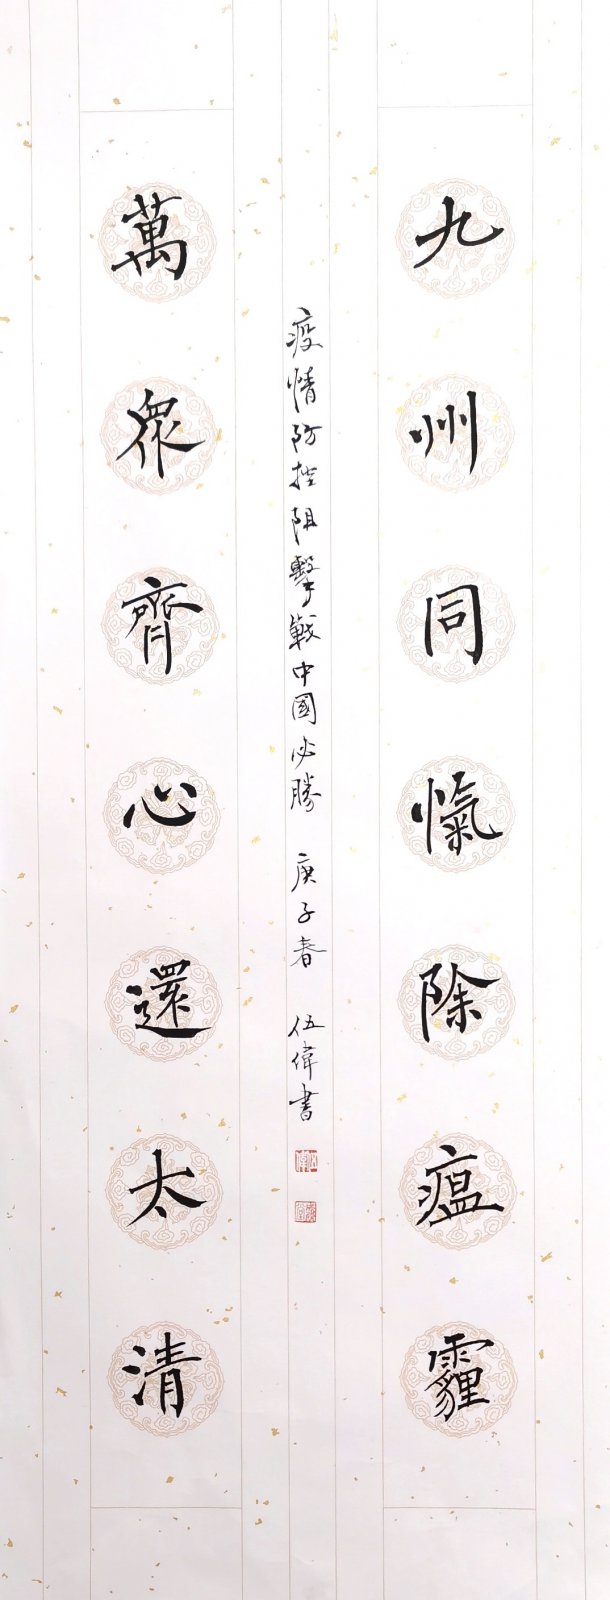 九州同愾除瘟霾
萬眾齊心還太清
疫情防控阻擊戰中國必勝 庚子春 伍偉書